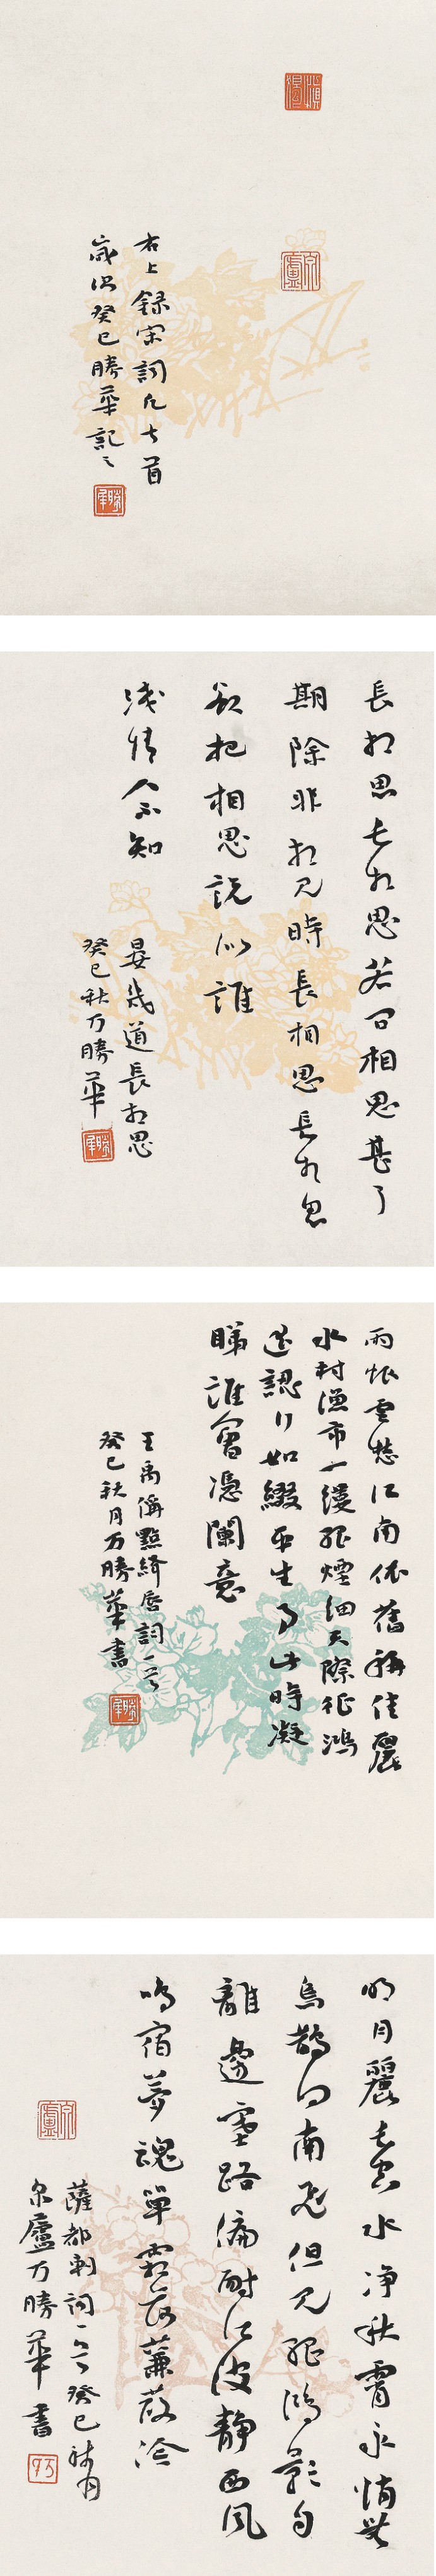 右上錄宋詞凡七首
歲次癸巳勝華記之
勝華
長相思長相思若問相思甚了
期除非相見時長相思長相思
欲把相思說似誰
淺情人不知
晏幾道長相思
癸巳秋万勝華
勝華
雨恨雲愁江南依舊稱佳麗
水村漁市一縷孤煙細天際征鴻
遙認行如綴平生事此時凝
睇誰會憑闌意
王禹偁點絳唇詞一首
癸巳秋月万勝華書
勝華
明月麗長空水淨秋霄永悄無
烏鵲向南飛但見孤鴻影自
離邊塞路偏耐江波靜西風
鳴宿夢魂單霜落蒹葭冷
薩都剌詞一首癸巳秋月
泉廬万勝華書